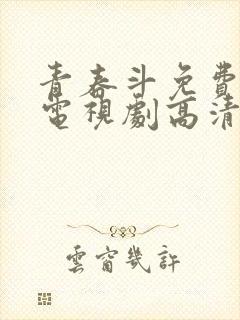 青春斗免費
電視劇高清
雲窗幾許